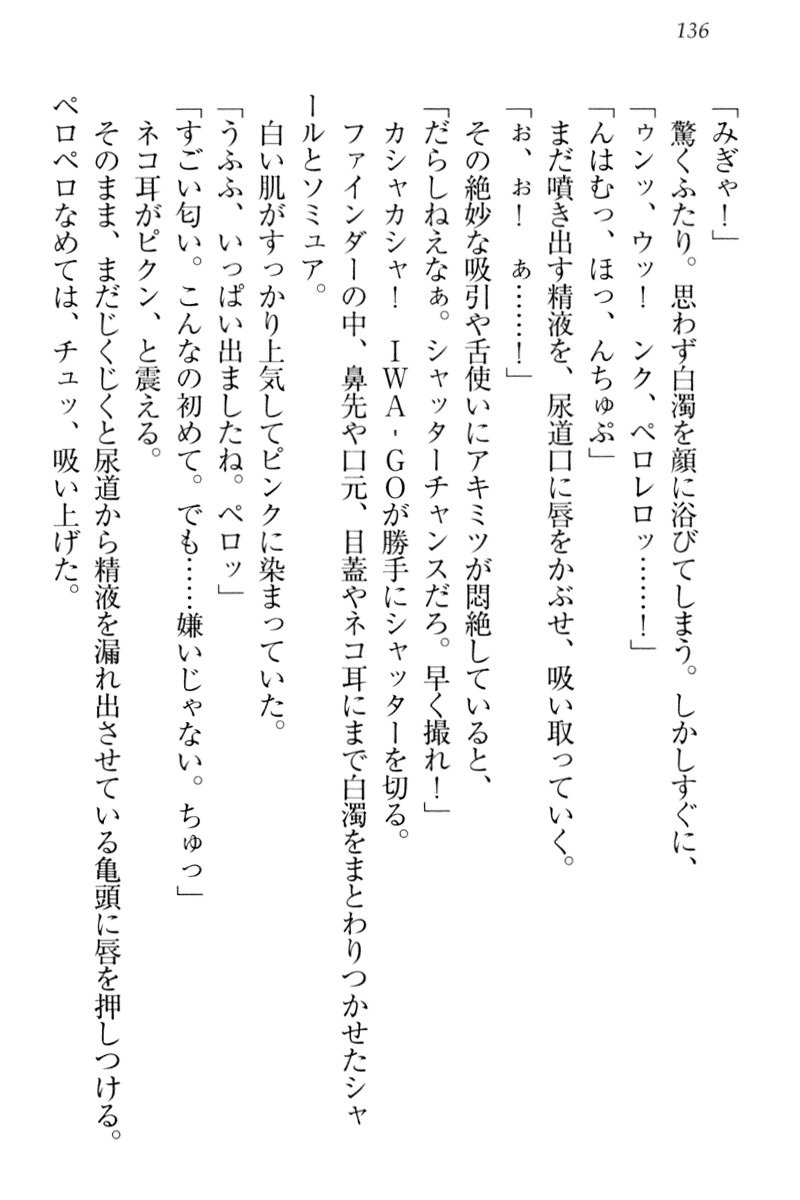 136
「みぎゃ！」
　驚くふたり。思わず白濁を顔に浴びてしまう。しかしすぐに、
「ゥンッ、ウッ！　ンク、ペロレロッ……！」
「んはむっ、ほっ、んちゅぷ」
　まだ噴き出す精液を、尿道口に唇をかぶせ、吸い取っていく。
「ぉ、お！　ぁ……！」
　その絶妙な吸引や舌使いにアキミツが悶絶していると、
「だらしねえなぁ。シャッターチャンスだろ。早く撮れ！」
　カシャカシャ！　ＩＷＡ‐ＧＯが勝手にシャッターを切る。
　ファインダーの中、鼻先や口元、目蓋やネコ耳にまで白濁をまとわりつかせたシャ
ールとソミュア。
　白い肌がすっかり上気してピンクに染まっていた。
「うふふ、いっぱい出ましたね。ペロッ」
「すごい匂い。こんなの初めて。でも……嫌いじゃない。ちゅっ」
　ネコ耳がピクン、と震える。
　そのまま、まだじくじくと尿道から精液を漏れ出させている亀頭に唇を押しつける。
ペロペロなめては、チュッ、吸い上げた。